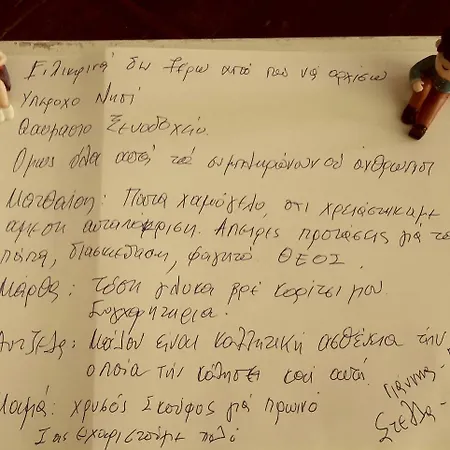 Ειλικρινά δεν ξέρω από που να αρχίσω
Υπέροχο Νησί
Θαυμάσιο Ξενοδοχείο.
Όμως όλα αυτά τα συμπληρώνουν οι άνθρωποι
Ματθαίος: Πάντα χαμόγελο, ότι χρειάστηκαμε
άμεση ανταπόκριση. Άπειρες προτάσεις για το
διασκέδαση, φαγητό. ΘΕΟΣ.
Μάρθα: Τόση γλύκα βρέ κορίτσι μου.
Συγχαρητήρια.
Αντζελα: Μάλλον είναι κολλητική ασθένεια την
οποία την κόλλησε και αυτή.
χρυσός Σκούφος για πρωινό
Σας ευχαριστούμε πολύ
Γιάννης -
Στέλλα -